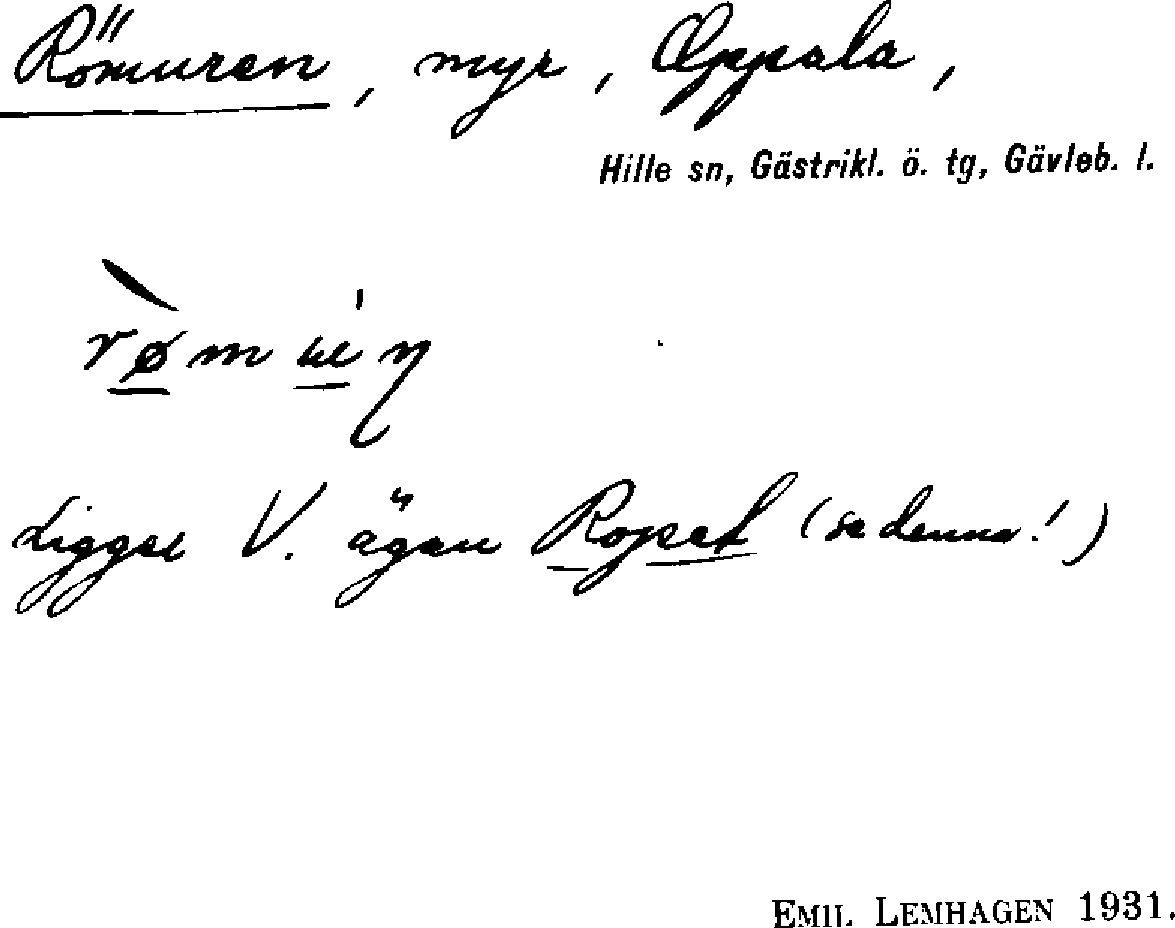 Römuren, myr, Oppala,
Hille sn, Gästrikl. ö. tg, Gävleb. l.
Ligger V. ägan Ropet (se denna!)
EMIL LEMHAGEN 1931.